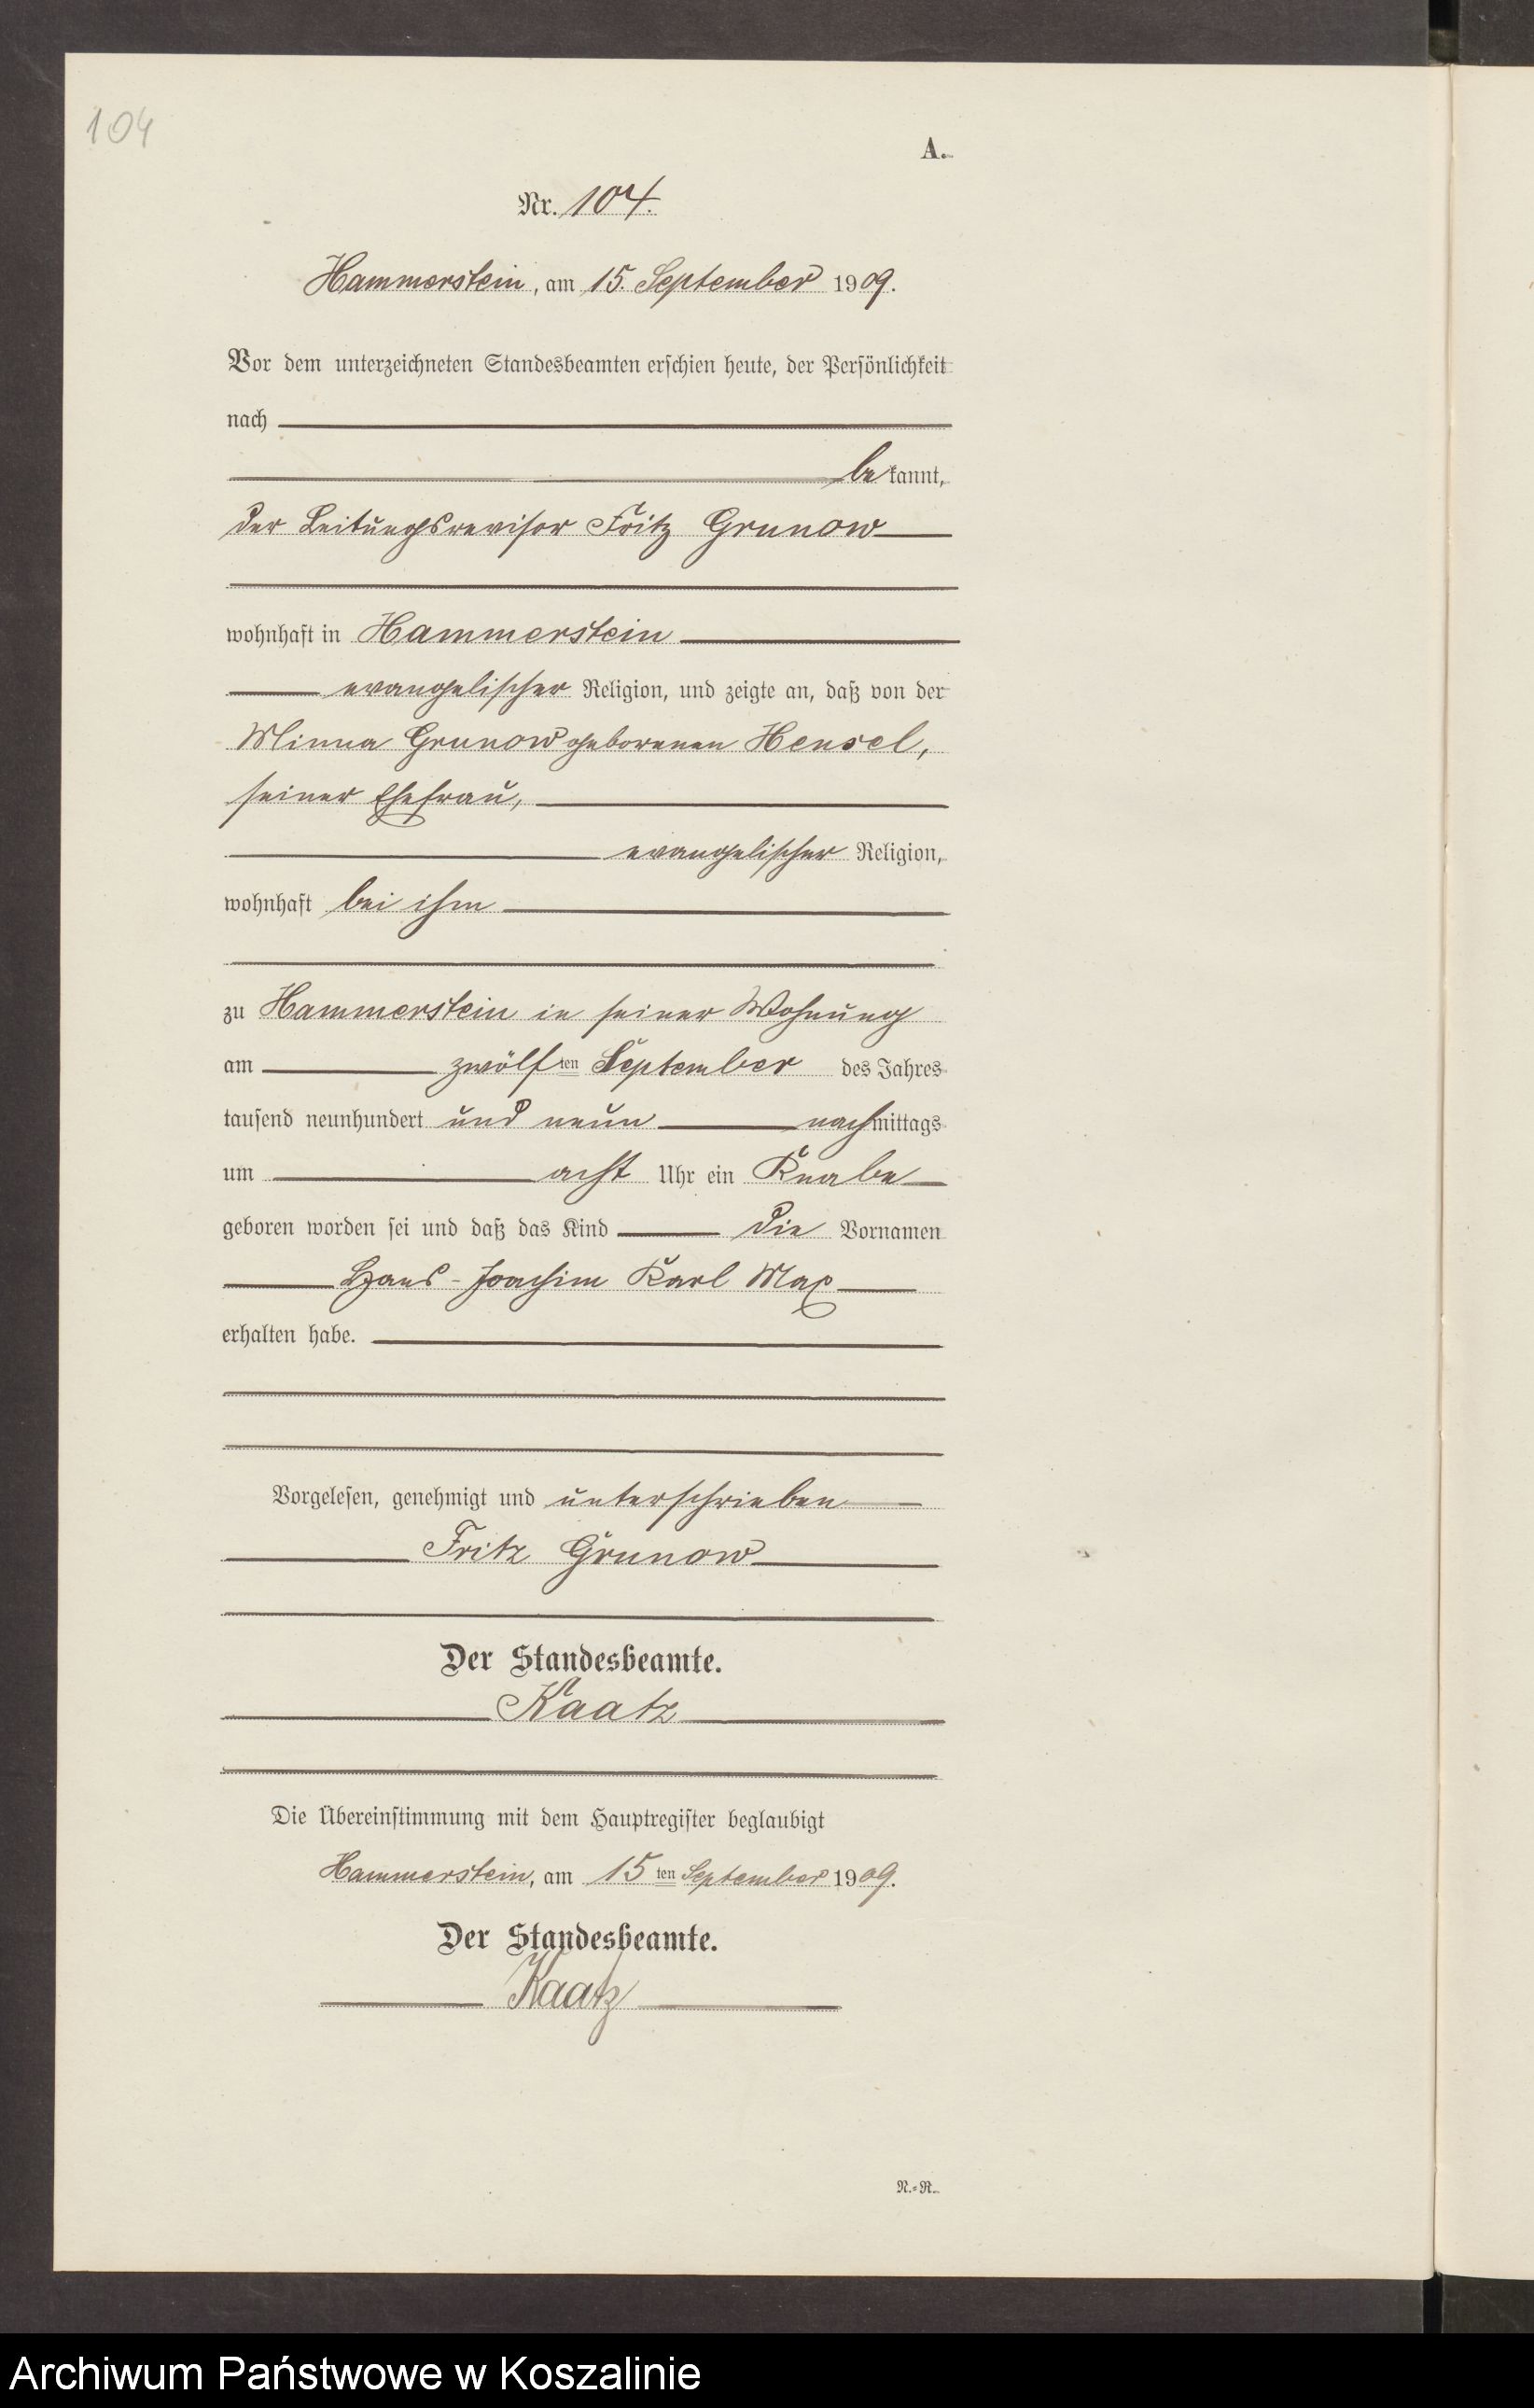 104
A.
Nr. 104.
Hammerstein, am 15. September 1909.
Vor dem unterzeichneten Standesbeamten erschien heute, der Persönlichkeit
nach
bekannt,
der Leitungsrevisor Fritz Grunow
wohnhaft in Hammerstein
evangelischer Religion, und zeigte an, daß von der
Minna Grunow geborenen Hensel,
seiner Ehefrau,
evangelischer Religion,
wohnhaft bei ihm
zu Hammerstein in seiner Wohnung
am zwölften September des Jahres
tausend neunhundert und neun nachmittags
um acht Uhr ein Knabe
geboren worden sei und daß das Kind die Vornamen
Hans-Joachim Karl Max
erhalten habe.
Vorgelesen, genehmigt und unterschrieben
Fritz Grunow
Der Standesbeamte.
Kaatz
Die Übereinstimmung mit dem Hauptregister beglaubigt
Hammerstein, am 15ten September 1909.
Der Standesbeamte.
Kaatz
N.-R.
Archiwum Państwowe w Koszalinie